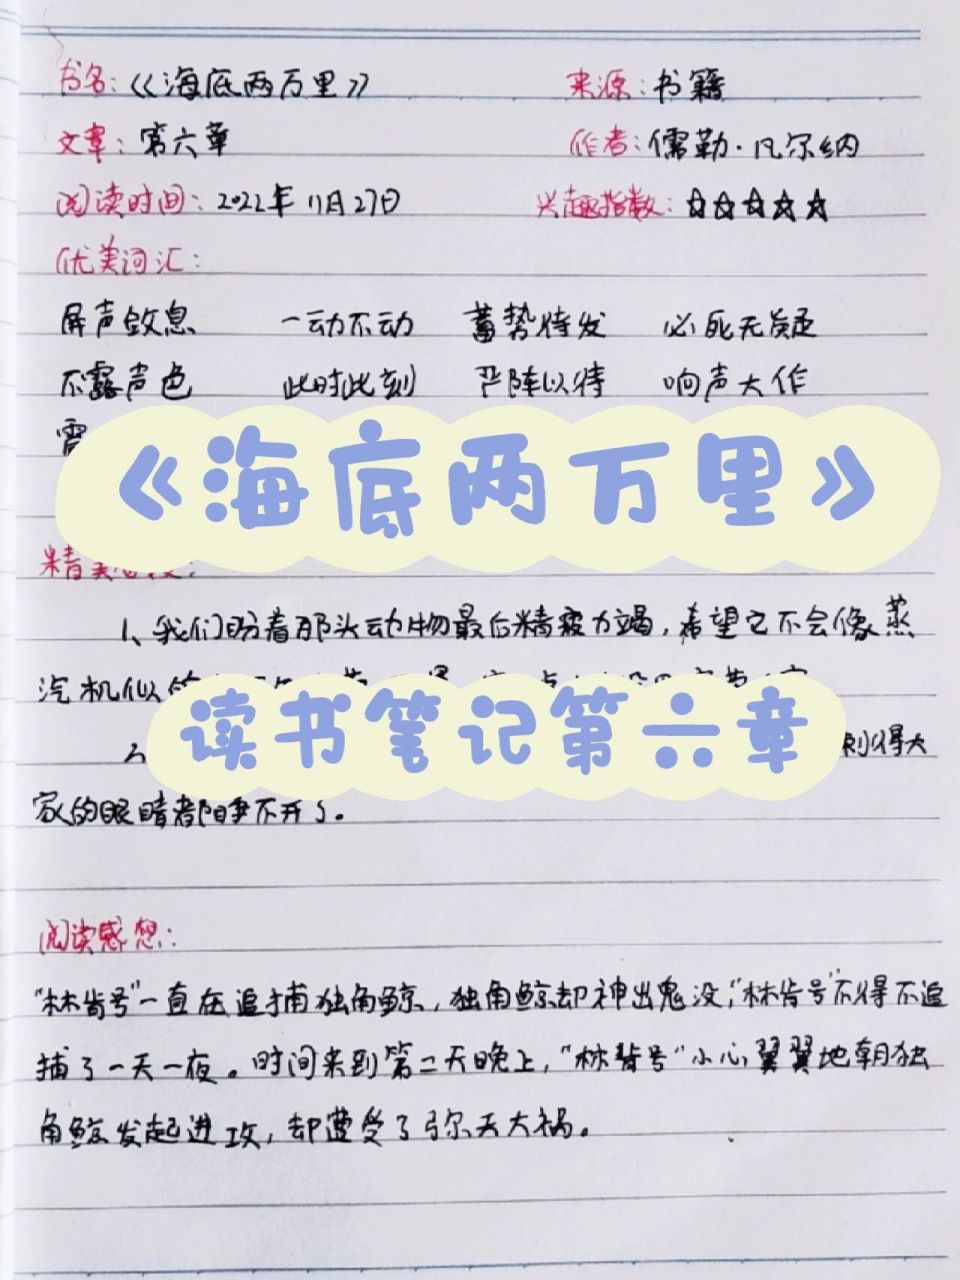 书名:《海底两万里》 来源:书籍
文章:第六章 作者:儒勒·凡尔纳
阅读时间:2022年11月27日 兴趣指数:☆☆☆☆☆
优美词汇:
屏声敛息 一动不动 蓄势待发 必死无疑
不露声色 此时此刻 严阵以待 响声大作
《海底两万里》
精美
1、我们盼着那头动物最后精疲力竭,希望它不会像蒸
汽机似的
读书笔记第六章
2、 刺得大
家的眼睛都睁不开了。
阅读感想:
"林肯号"一直在追捕独角鲸,独角鲸却神出鬼没,"林肯号"不得不追
捕了一天一夜。时间来到第二天晚上,"林肯号"小心翼翼地朝独
角鲸发起进攻,却遭受了弥天大祸。